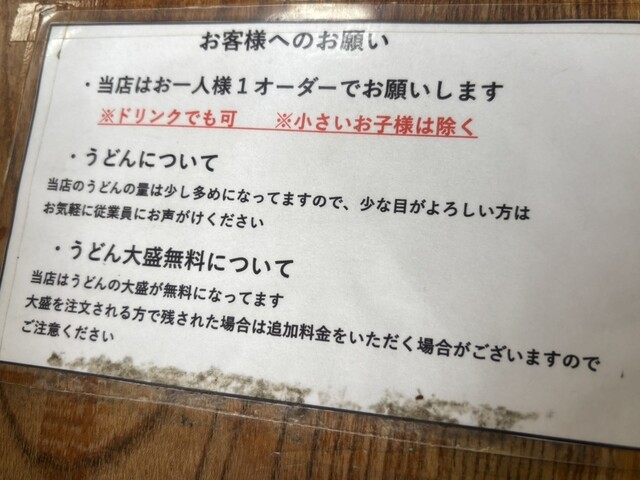 お客様へのお願い
・当店はお一人様１オーダーでお願いします
※ドリンクでも可　※小さいお子様は除く
・うどんについて
当店のうどんの量は少し多めになってますので、少な目がよろしい方は
お気軽に従業員にお声がけください
・うどん大盛無料について
当店はうどんの大盛が無料になってます
大盛を注文される方で残された場合は追加料金をいただく場合がございますので
ご注意ください